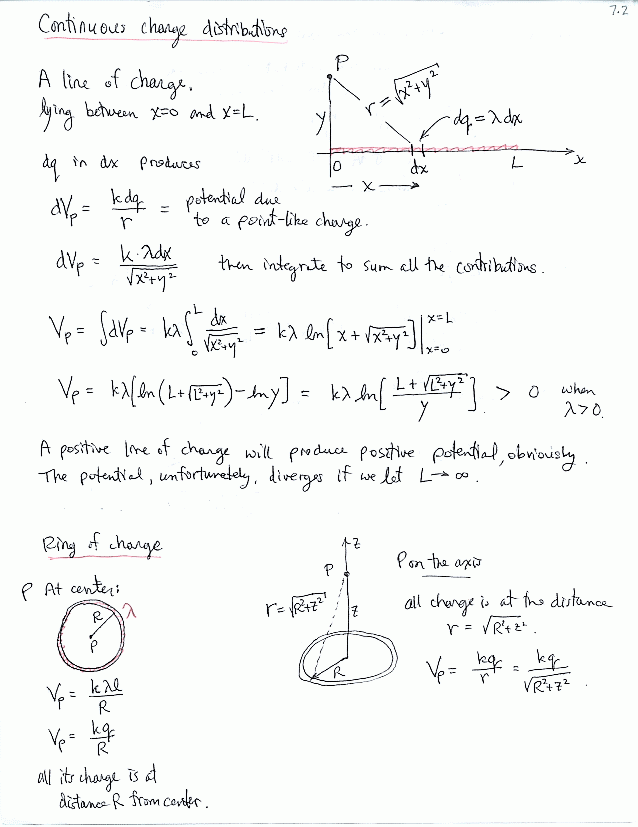 7.2
Continuous charge distributions
A line of charge,
lying between x=0 and x=L.
P
r = √(x²+y²)
y
dq = λdx
0
dx
L
x
x
dq in dx produces
dVp = k dq / r = potential due to a point-like charge.
dVp = k·λdx / √(x²+y²) then integrate to sum all the contributions.
Vp = ∫dVp = kλ ∫₀ᴸ dx / √(x²+y²) = kλ ln[x + √(x²+y²)] |x=L x=0
Vp = kλ[ln(L+√(L²+y²)) − ln y] = kλ ln[(L + √(L²+y²)) / y] > 0 when λ>0.
A positive line of charge will produce positive potential, obviously.
The potential, unfortunately, diverges if we let L→∞.
Ring of charge
P At center:
R
λ
P
Vp = kλl / R
Vp = kq / R
all its charge is at
distance R from center.
z
P
r = √(R²+z²)
z
R
P on the axis
all charge is at the distance
r = √(R²+z²).
Vp = kq / r = kq / √(R²+z²).